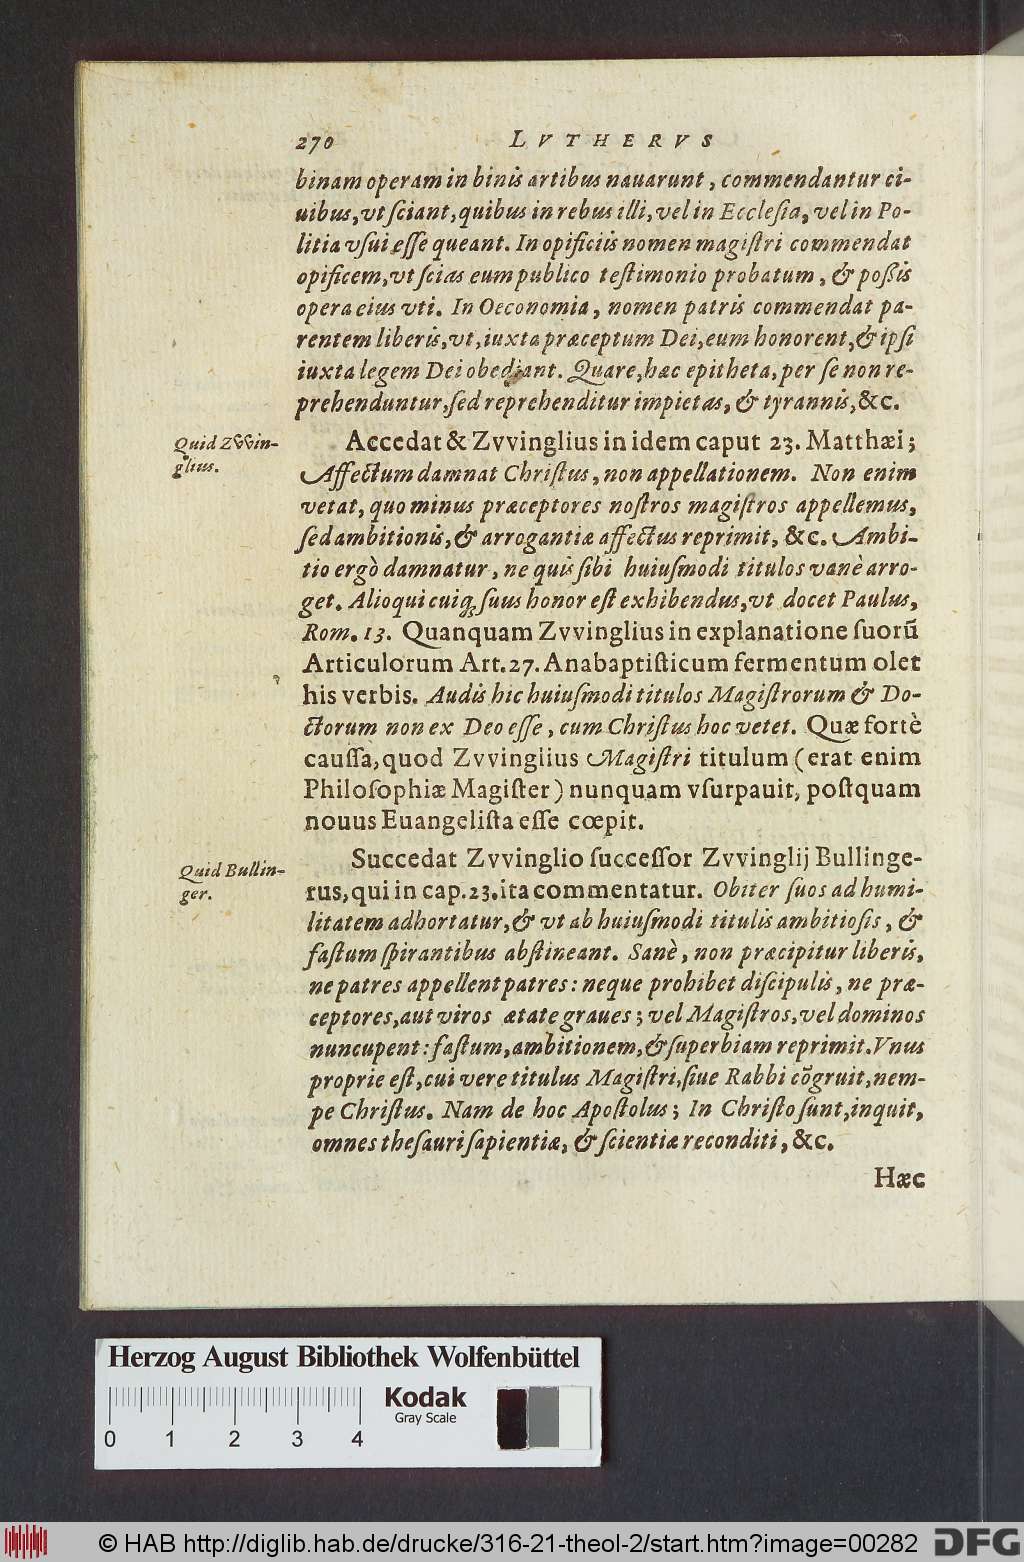 270 LVTHERVS
binam operam in binis artibus nauarunt, commendantur ci-
uibus, vt ſciant, quibus in rebus illi, vel in Eccleſia, vel in Po-
litia vſui eſſe queant. In opificiis nomen magiſtri commendat
opificem, vt ſcias eum publico teſtimonio probatum, & poßis
opera eius vti. In Oeconomia, nomen patris commendat pa-
rentem liberis, vt, iuxta præceptum Dei, eum honorent, & ipſi
iuxta legem Dei obediant. Quare, hæc epitheta, per ſe non re-
prehenduntur, ſed reprehenditur impietas, & tyrannis, &c.
Quid ZVVin-
glius.
Accedat & Zvvinglius in idem caput 23. Matthæi;
Affectum damnat Chriſtus, non appellationem. Non enim
vetat, quo minus præceptores noſtros magiſtros appellemus,
ſed ambitionis, & arrogantiæ affectus reprimit, &c. Ambi-
tio ergò damnatur, ne quis ſibi huiuſmodi titulos vanè arro-
get. Alioqui cuiq; ſuus honor eſt exhibendus, vt docet Paulus,
Rom. 13. Quanquam Zvvinglius in explanatione ſuorũ
Articulorum Art. 27. Anabaptiſticum fermentum olet
his verbis. Audis hic huiuſmodi titulos Magiſtrorum & Do-
ctorum non ex Deo eſſe, cum Chriſtus hoc vetet. Quæ fortè
cauſſa, quod Zvvinglius Magiſtri titulum (erat enim
Philoſophiæ Magiſter) nunquam vſurpauit, poſtquam
nouus Euangeliſta eſſe cœpit.
Quid Bullin-
ger.
Succedat Zvvinglio ſucceſſor Zvvinglij Bullinge-
rus, qui in cap. 23. ita commentatur. Obiter ſuos ad humi-
litatem adhortatur, & vt ab huiuſmodi titulis ambitioſis, &
faſtum ſpirantibus abſtineant. Sanè, non præcipitur liberis,
ne patres appellent patres: neque prohibet diſcipulis, ne præ-
ceptores, aut viros ætate graues; vel Magiſtros, vel dominos
nuncupent: faſtum, ambitionem, & ſuperbiam reprimit. Vnus
proprie eſt, cui vere titulus Magiſtri, ſiue Rabbi cõgruit, nem-
pe Chriſtus. Nam de hoc Apoſtolus; In Chriſto ſunt, inquit,
omnes theſauri ſapientiæ, & ſcientiæ reconditi, &c.
Hæc
Herzog August Bibliothek Wolfenbüttel
Kodak
Gray Scale
0 1 2 3 4
© HAB http://diglib.hab.de/drucke/316-21-theol-2/start.htm?image=00282
DFG